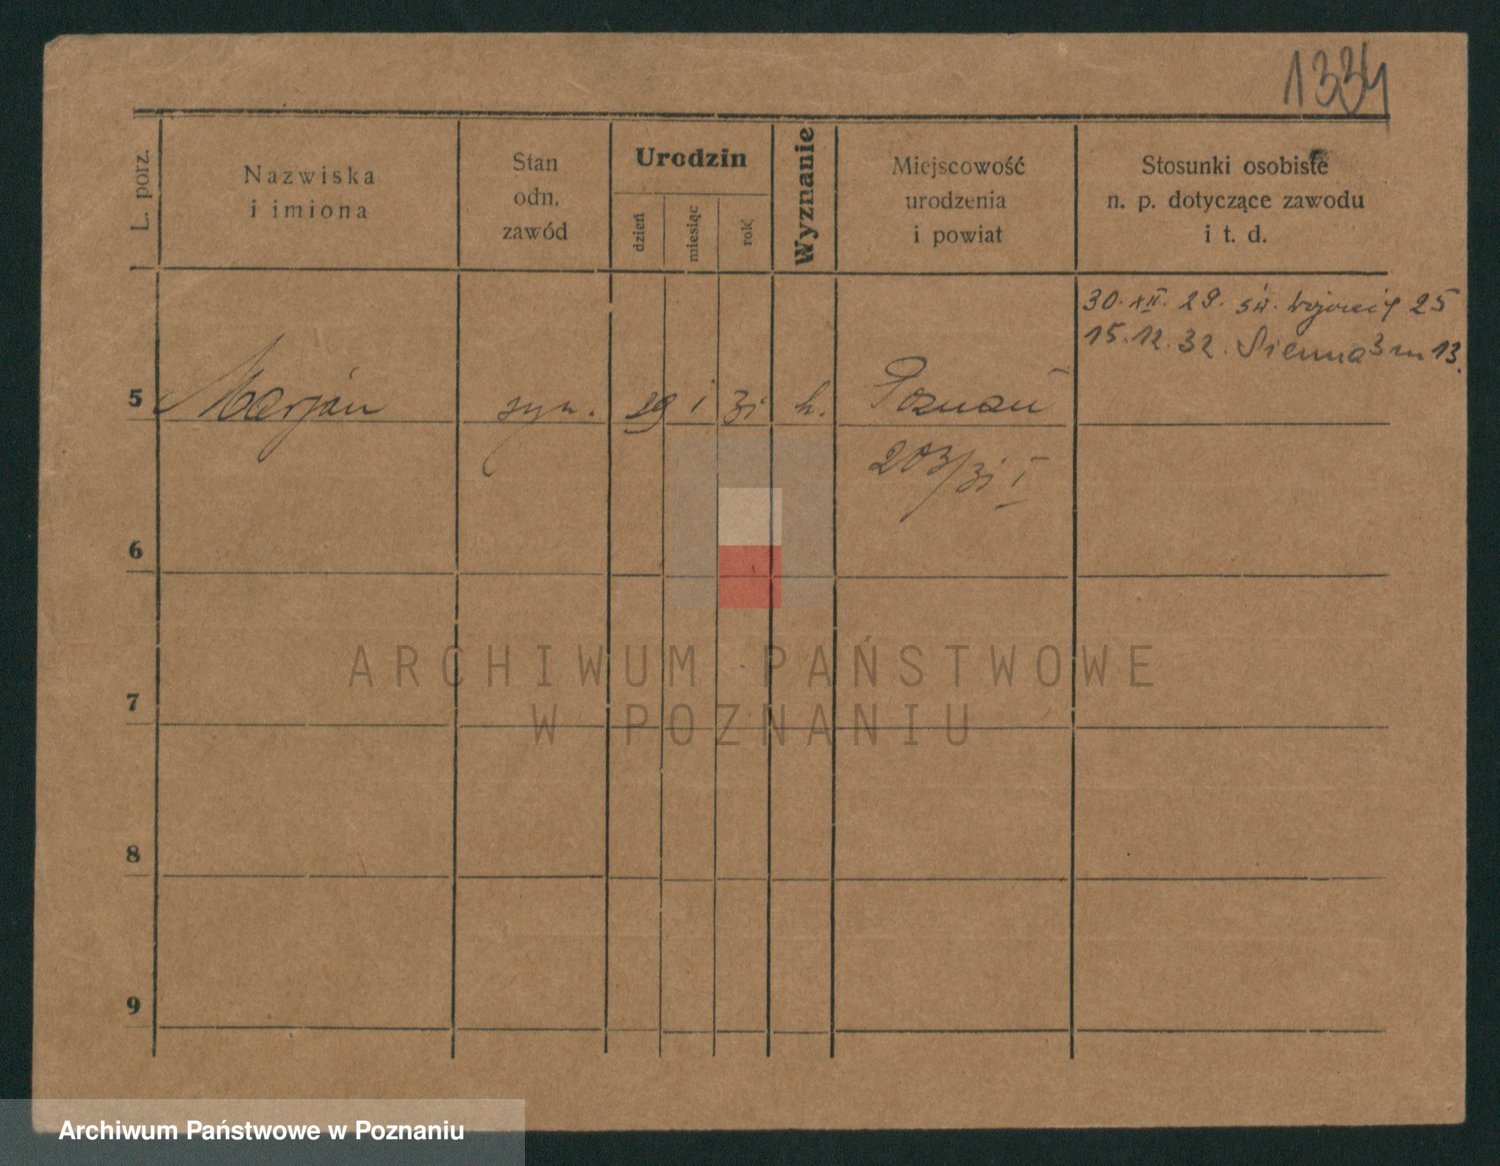 1334
L. porz.
Nazwiska
i imiona
Stan
odn.
zawód
Urodzin
dzień
miesiąc
rok
Wyznanie
Miejscowość
urodzenia
i powiat
Stosunki osobiste
n. p. dotyczące zawodu
i t. d.
30. XII. 29. św. Wojciech 25
15.12.32. Sienna 3 m 13.
5 Marjan syn. 29 1 31 k. Poznań
203/31 I
6
7
8
9
ARCHIWUM PAŃSTWOWE
W POZNANIU
Archiwum Państwowe w Poznaniu